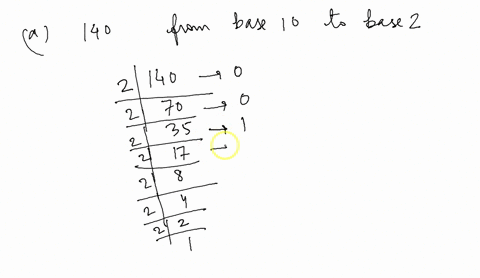 (a) 140 from base 10 to base 2
2 140 → 0
2 70 → 0
2 35 → 1
2 17 →
2 8
2 4
2 2
1